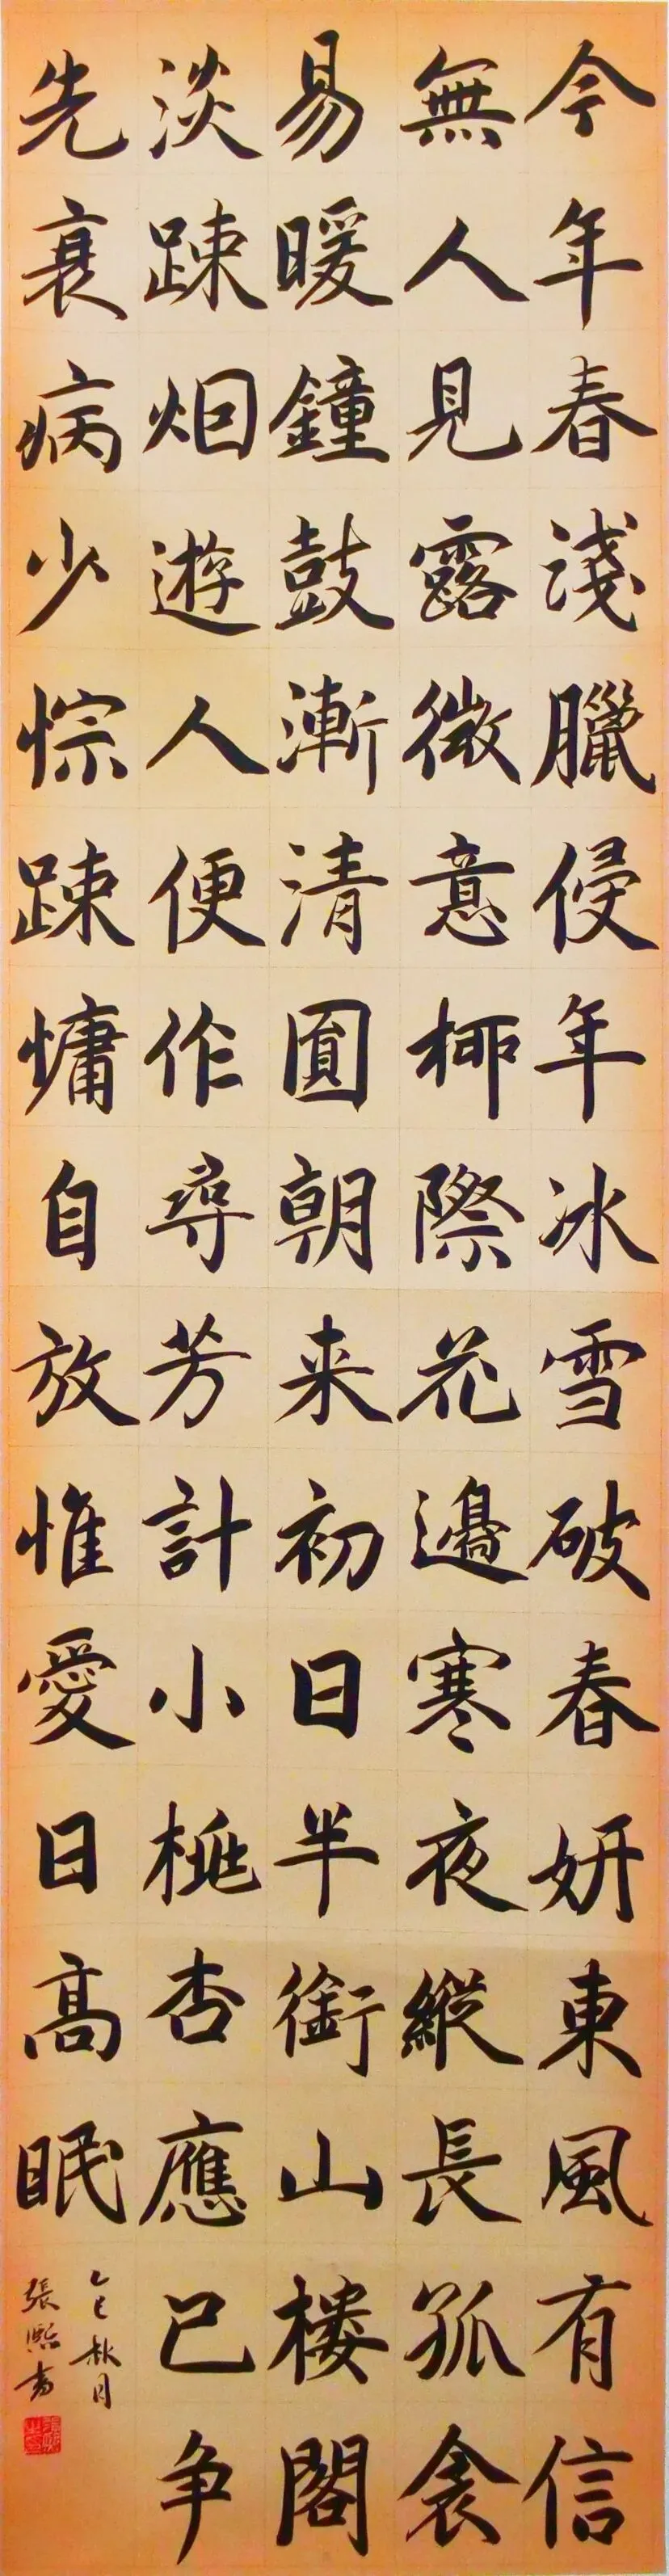 今年春淺臘侵年冰雪破春妍東風有信
無人見露微意柳際花邊寒夜縱長孤衾
易暖鐘鼓漸清圓朝来初日半銜山樓閣
淡踈烟遊人便作尋芳計小桃杏應已争
先衰病少悰踈慵自放惟愛日高眠
乙巳秋月
張熙書